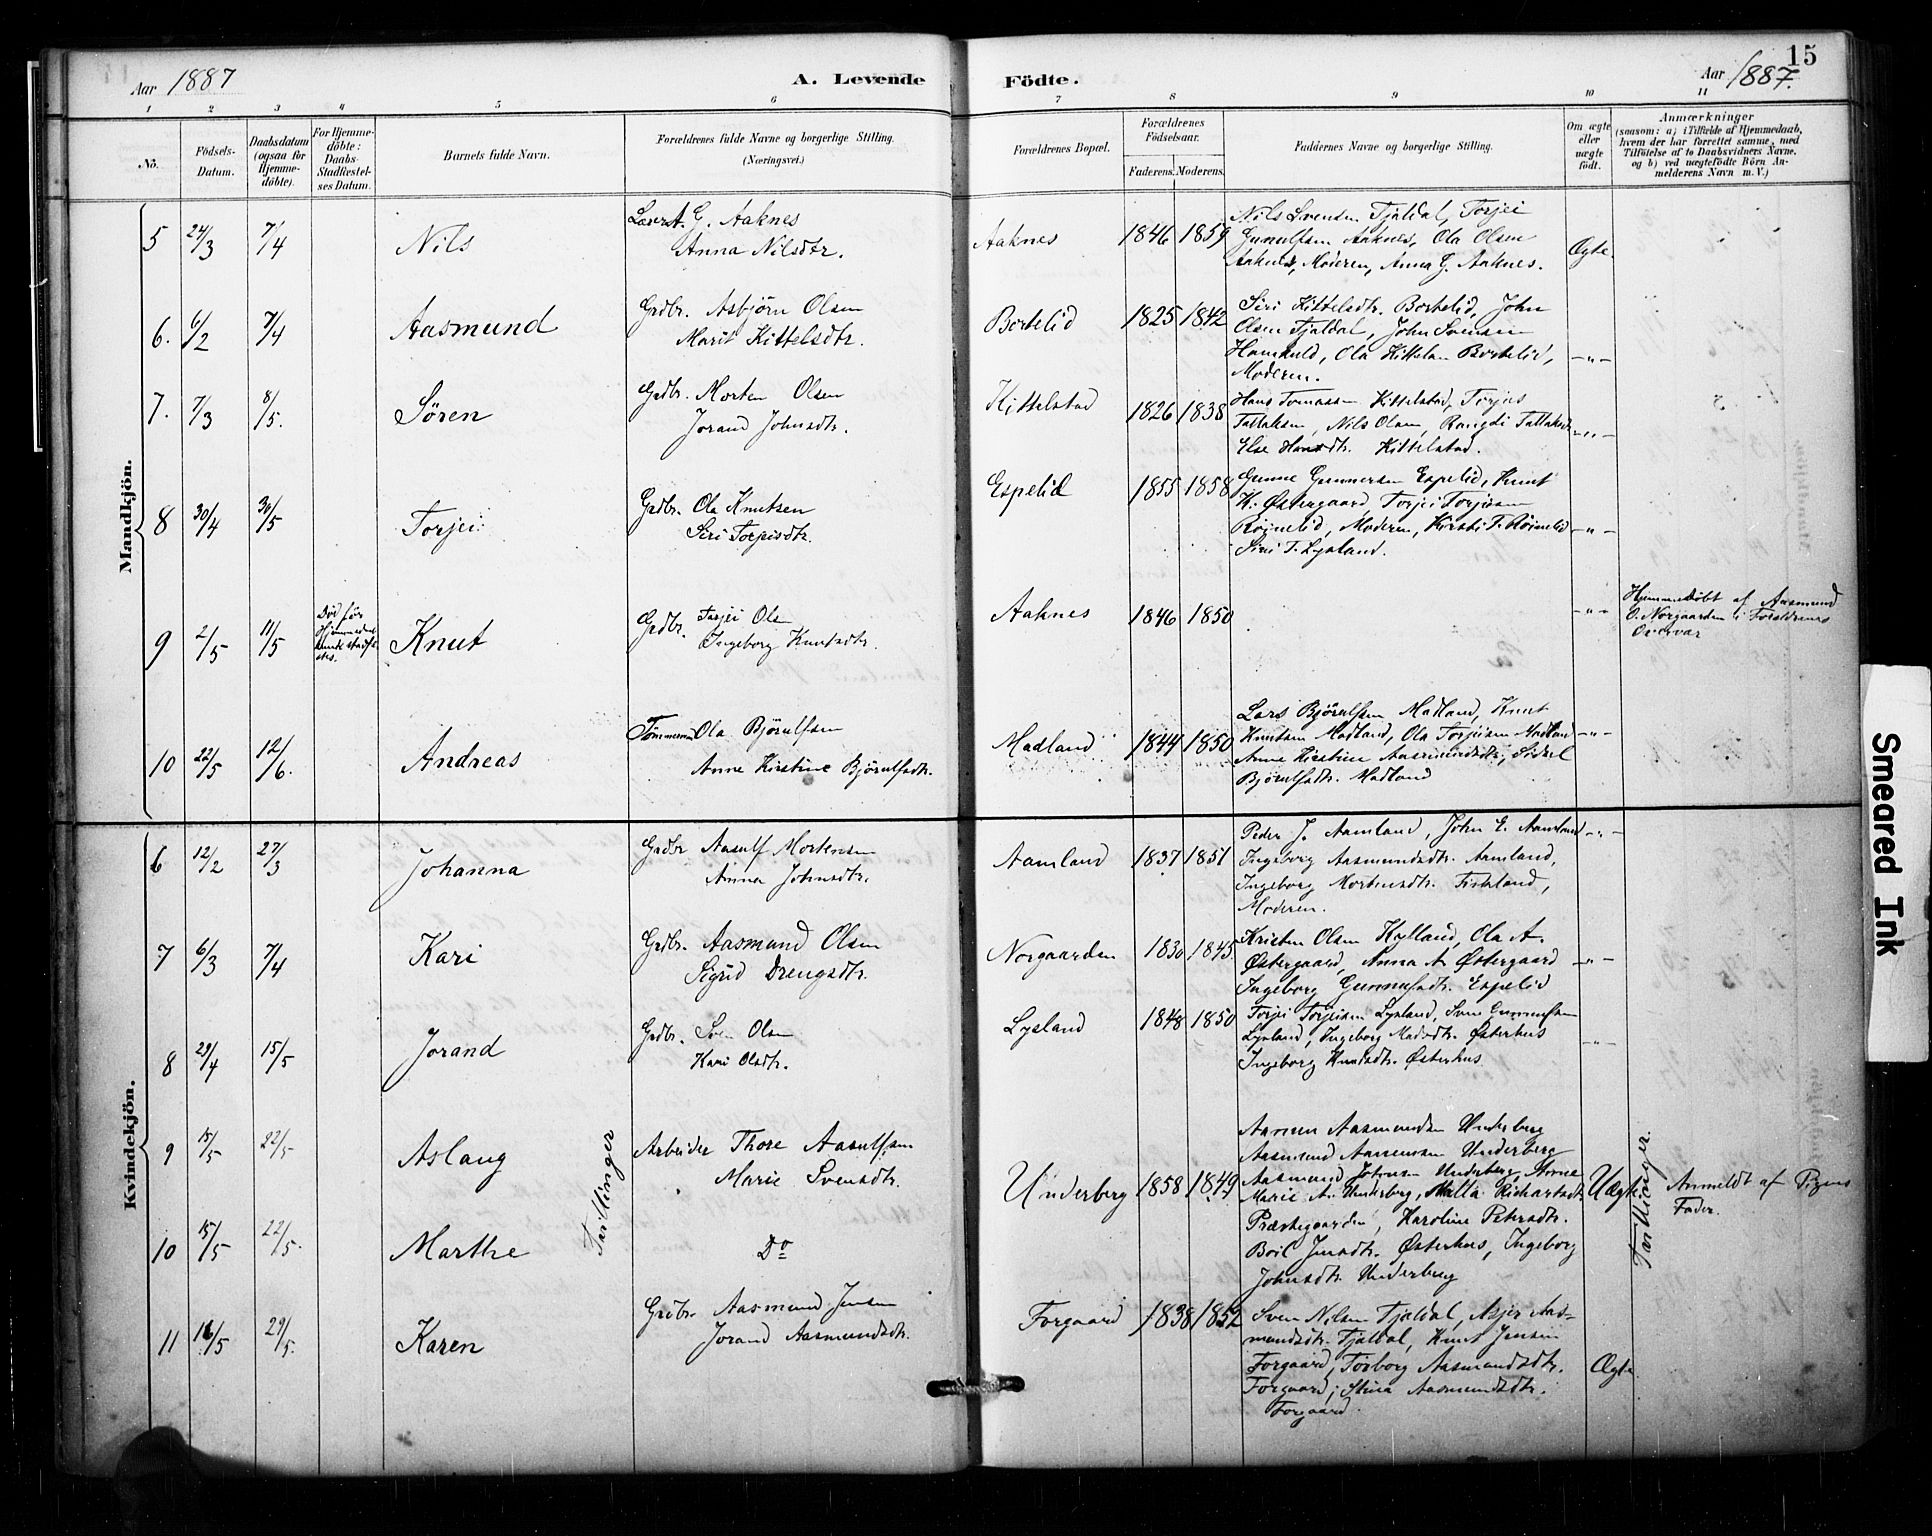 Aar 1887 A. Levende Födte. Aar 1887. 15
1 2 3 4 5 6 7 8 9 10 11
No. Födsels-Datum. Daabsdatum (ogsaa for Hjemmedöbte). For Hjemmedöbte: Daabs-Stadfæstelses Datum. Barnets fulde Navn. Forældrenes fulde Navne og borgerlige Stilling. (Næringsvei.) Forældrenes Bopæl. Forældrenes Födselsaar. Faderens. Moderens. Faddernes Navne og borgerlige Stilling. Om ægte eller uægte födt. Anmærkninger (saasom: a) i Tilfælde af Hjemmedaab, hvem der har forrettet samme, med Tilföielse af to Daabsvidners Navne, og b) ved uægtefödte Börn Anmelderens Navn m. V.)
Mandkjön.
5 24/3 7/4 Nils G. Aaknes
Anna Nilsdtr. Aaknes 1846 1859 Nils Svensen Tjaldal, Torjei
Gunulfsen Aaknes, Ola Olsen
Aaknes, Moderen, Anna G. Aaknes. Ægte.
6. 6/2 7/4 Aasmund Grdbr. Asbjörn Olsen
Marit Kittelsdtr. Borkelid 1825 1842 Siri Kittelsdtr. Borkelid, John
Olsen Tjaldal, John Svensen
Hamkold, Ola Kittelsen Borkelid,
Moderen. -"-
7. 7/3 8/5. Sören Grdbr. Morten Olsen
Jorand Johnsdtr. Kittelstad 1826 1838 Hans Tomassen Kittelstad, Terjes
Tallaksen, Nils Olsen, Rangdi Tallaksdtr
Else Hansdtr. Kittelstad. -"-
8 30/4 30/5 Torjei Grdbr. Ola Knutsen
Siri Torjeisdtr. Espelid 1855 1858 Gunne Gunnersen Espelid, Knut
K. Østergaard, Torjei Torjeisen
Röinelid, Moderen, Kirsti T. Röinelid
Siri T. Lysland. -"-
9 2/5 11/5 Död för
Knut Grdbr. Torjei Olsen
Ingeborg Knutsdtr. Aaknes 1846 1850 -"- Hjemmedöbt af Aasmund
O. Norgaarden i Forældrenes
Overvær
10 22/5 12/6. Andreas Tømmermand Ola Björulfsen
Anne Kirstine Björulfsdtr. Madland 1844 1850 Lars Björulfsen Madland, Knut
Knutsen Madland, Ola Torjeisen Madland
Anne Kirstine Aasmundsdtr, Siskel
Björulfsdtr. Madland -"-
Kvindekjön.
6 12/2 27/3 Johanna Grdbr Aasulf Mortensen
Anna Johnsdtr. Aamland 1837 1851 Peder J. Aamland, John E. Aamland
Ingeborg Aasmundsdtr. Aamland,
Ingeborg Mortensdtr. Fiskeland,
Moderen. -"-
7 6/3 7/4 Kari Grdbr. Aasmund Olsen
Sigrid Drengsdtr. Norgaarden 1830 1845. Kristen Olsen Kylland, Ola A.
Østergaard, Anna A. Østergaard
Ingeborg Gunnufsdtr. Espelid -"-
8 29/4 15/5 Jorand Grdbr. Sven Olsen
Kari Olsdtr. Lysland 1848 1850 Torjei Torjeisen Lysland, Sven Gunnufsen
Lysland, Ingeborg Madsdtr. Østerhus
Ingeborg Knudsdtr. Østerhus -"-
9 15/5 22/5 Aslaug Tvillinger Arbeider Thore Aasulfsen
Marie Svensdtr. Underberg 1858 1849 Aanen Aasmundsen Underberg
Aasmund Aanensen Underberg
Aasmund Johnsen Underberg, Anne
Marie A. Underberg, Malla Rickertsdtr
Præstegaarden, Karoline Petersdtr.
Boil Jensdtr. Østerhus, Ingeborg
Johnsdtr. Underberg Uægte. Tvillinger. Anmeldt af Pigens
Fader.
10 15/5 22/5. Marthe Do
11 16/5 29/5. Karen Grdbr. Aasmund Jensen
Jorand Aasmundsdtr. Forgaard 1838 1852 Sven Nilsen Tjaldal, Asjer Aas-
mundsdtr. Tjaldal, Knut Jensen
Forgaard, Torborg Aasmundsdtr.
Forgaard, Stina Aasmundsdtr.
Forgaard Ægte.
Smeared Ink